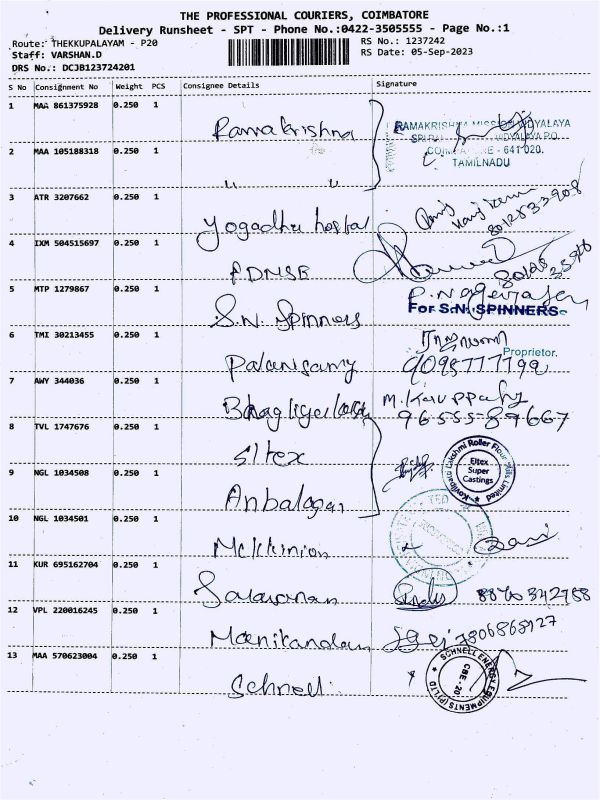 THE PROFESSIONAL COURIERS, COIMBATORE
Delivery Runsheet - SPT - Phone No.:0422-3505555 - Page No.:1
Route: THEKKUPALAYAM - P20
RS No.: 1237242
Staff: VARSHAN.D
RS Date: 05-Sep-2023
DRS No.: DCJB123724201
S No Consignment No Weight PCS Consignee Details Signature
1 MAA 861375928 0.250 1
Ramakrishna
RAMAKRISHNA MISSION VIDYALAYA
VIDYALAYA P.O.
- 641 020.
TAMILNADU
2 MAA 105188318 0.250 1
" "
3 ATR 3207662 0.250 1
Yogadha hospital
4 IXM 504515697 0.250 1
PDMSB
5 MTP 1279867 0.250 1
S.N. Spinners
P. Nagarajan
For S.N. SPINNERS
Proprietor.
6 TMI 30213455 0.250 1
Palanisamy
9095777799
7 AWY 344036 0.250 1
M. Karuppahy
9655589667
8 TVL 1747676 0.250 1
Eltex
Kovilpatti Lakshmi Roller Flour Mills Limited
Eltex
Super
Castings
9 NGL 1034508 0.250 1
Anbalagan
10 NGL 1034501 0.250 1
Mckkinion
11 KUR 695162704 0.250 1
Saravanan
8870342788
12 VPL 220016245 0.250 1
Manikandan
7806868927
13 MAA 570623004 0.250 1
Schnell
SCHNELL ENERGY EQUIPMENTS (P) LTD
CBE-20